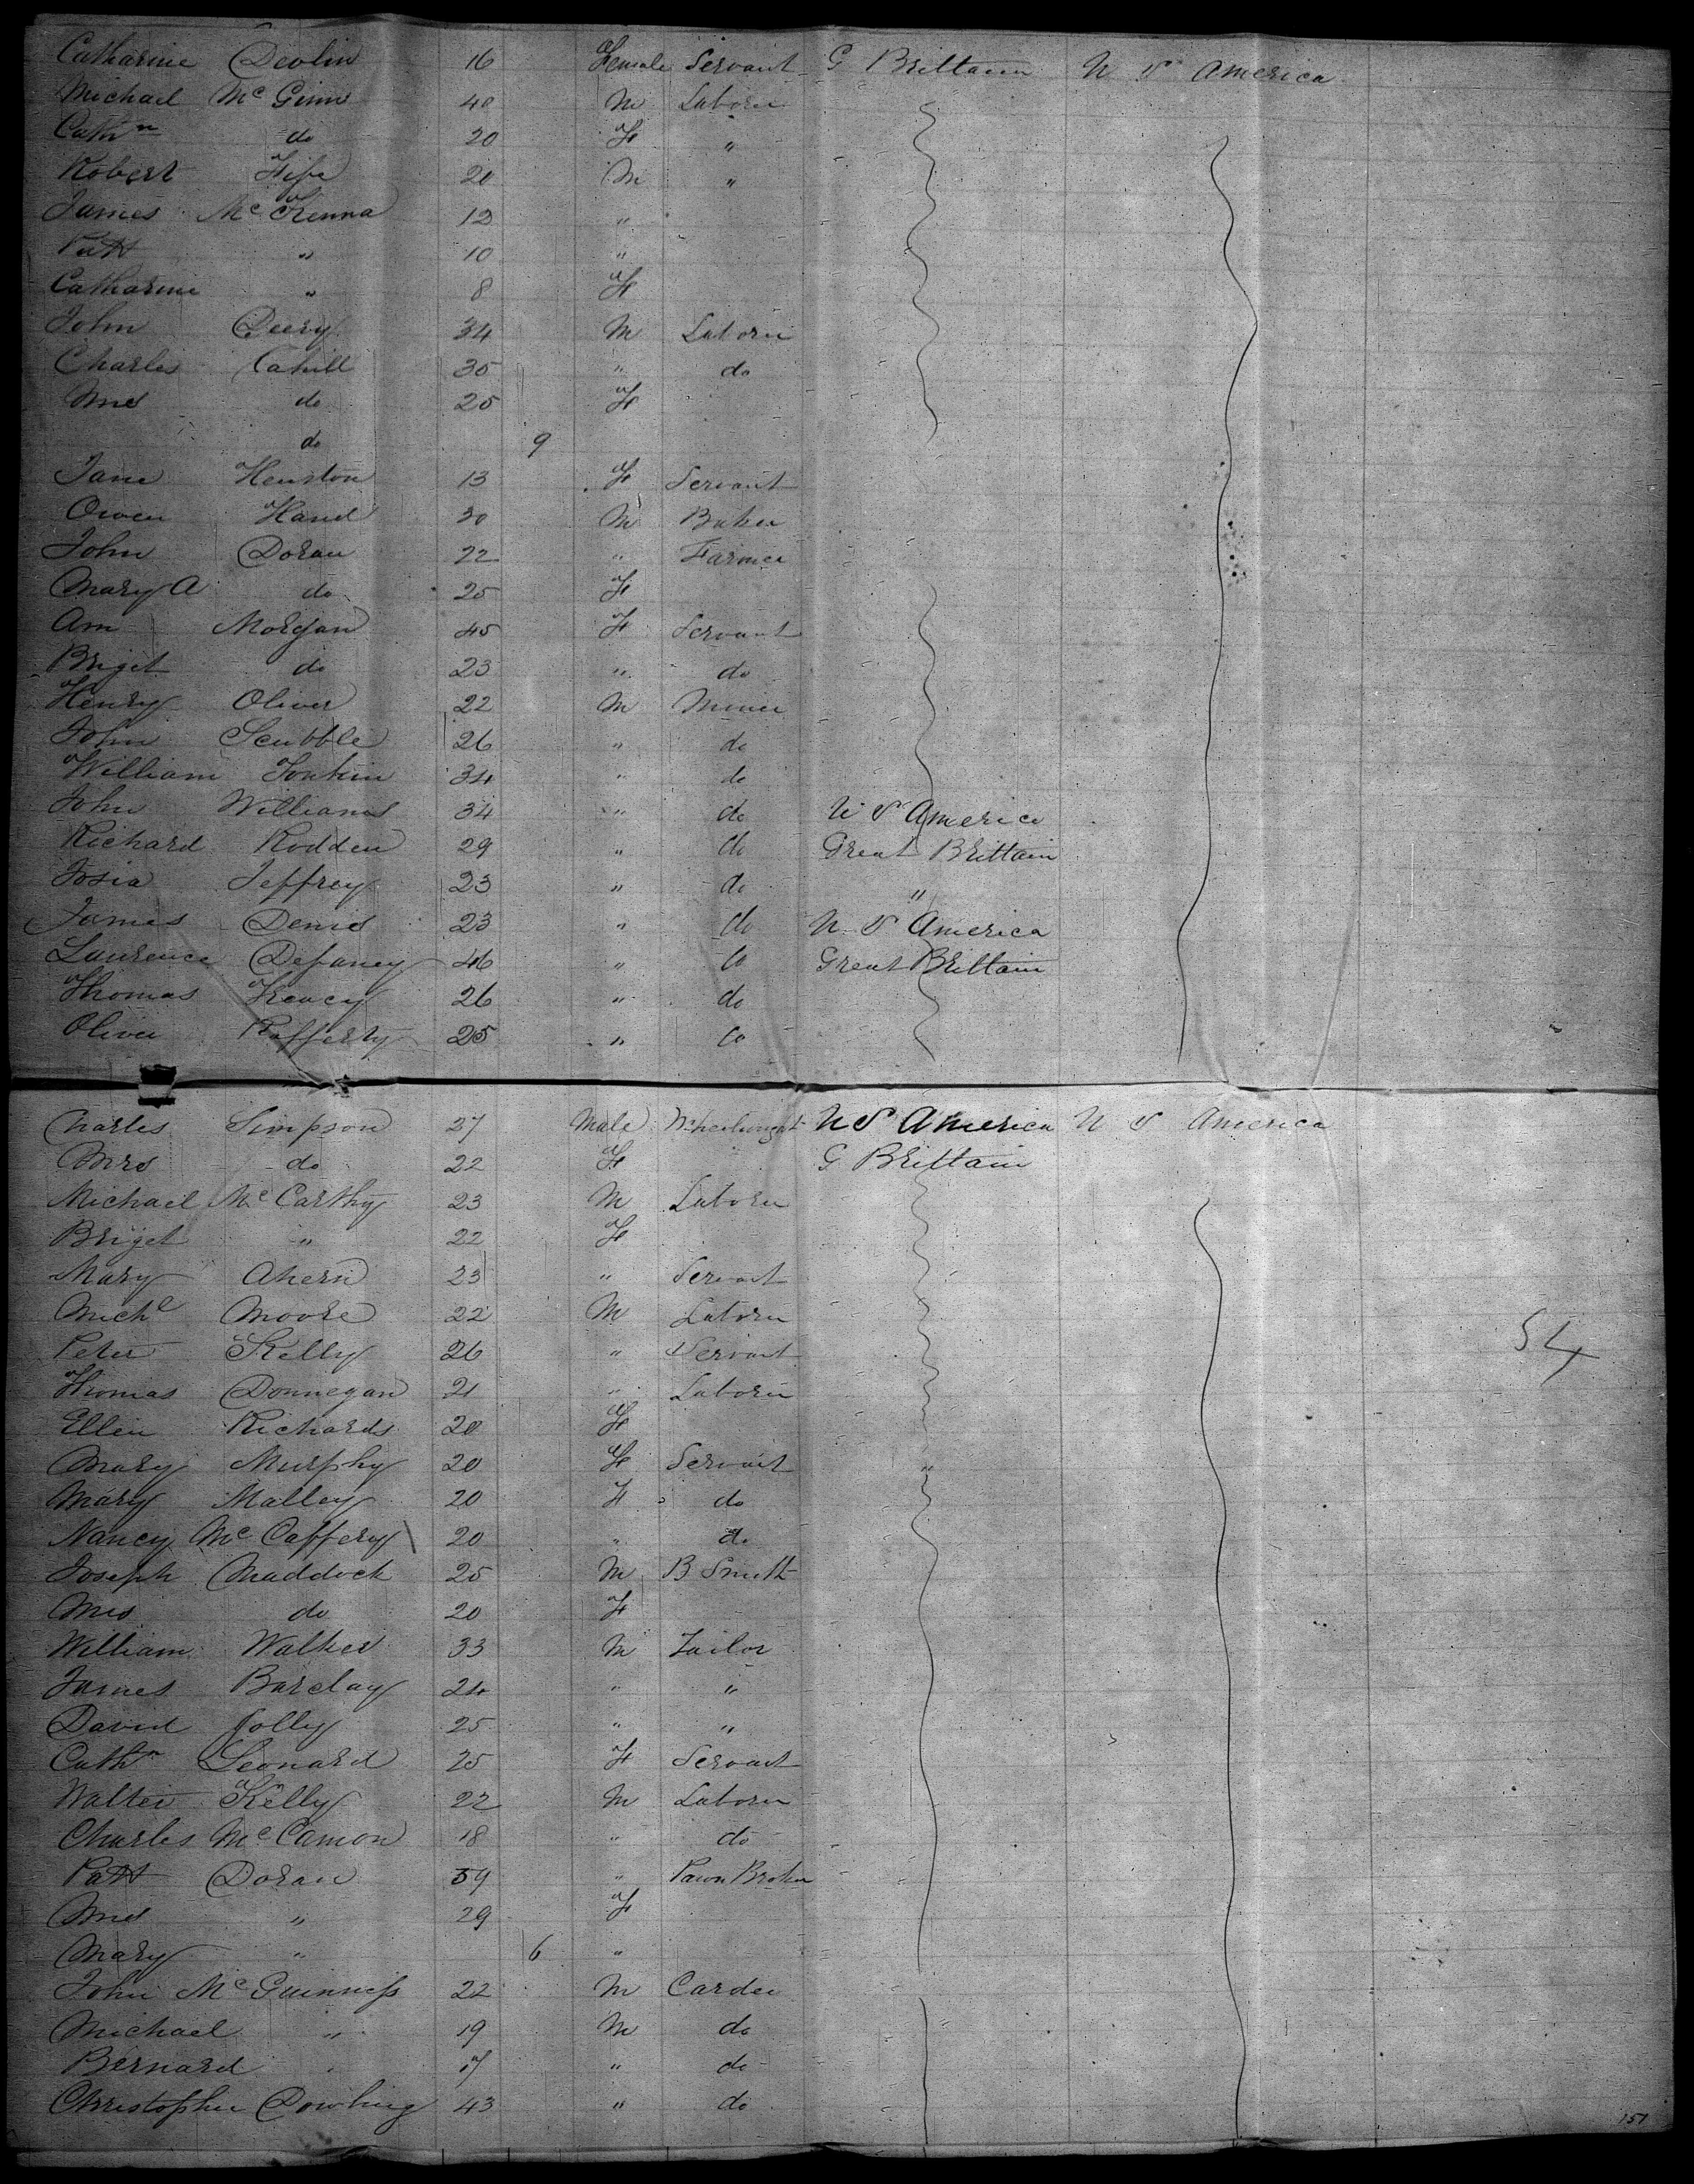 Catharine Devlin 16 Female Servant G Brittain U S America
Michael McGinn 40 M Laborer
Cathn do 20 F "
Robert Fife 20 M "
James McKenna 12 "
Patt " 10 "
Catharine " 8 F
John Deery 34 M Laborer
Charles Cahill 35 " do
Mrs do 25 F
do 9
Jane Heuston 13 F Servant
Owen Hand 30 M Baker
John Doran 22 " Farmer
Mary A do 25 F
Ann Morgan 45 F Servant
Briget do 23 " do
Henry Oliver 22 M Miner
John Scubble 26 " do
William Tonkin 34 " do
John Williams 34 " do U S America
Richard Rodden 29 " do Great Brittain
Josia Jeffrey 23 " do "
James Denis 23 " do U. S America
Laurence Defaney 46 " do Great Brittain
Thomas 26 " do
Oliver Rafferty 25 " do
Charles Simpson 27 Male Wheelwright U S America U S America
Mrs do 22 F G Brittain
Michael McCarthy 23 M Laborer
Briget " 22 F
Mary Ahern 23 " Servant
Michl Moore 22 M Laborer
Peter Kelly 26 " Servant
54
Thomas Donnegan 21 " Laborer
Ellen Richards 20 F
Mary Murphy 20 F Servant "
Mary Malley 20 F do
Nancy McCaffery 20 " do
Joseph Maddock 25 M B Smith
Mrs do 20 F
William Walker 33 M Tailor
James Barclay 24 " "
David Jolly 25 " "
Cathn Leonard 25 F Servant
Walter Kelly 22 M Laborer
Charles McCamon 18 " do
Patt Doran 39 " Pawn Broker
Mrs " 29 F
Mary " 6 "
John McGuinness 22 M Carder
Michael " 19 M do
Bernard " 17 " do
Christopher Dowling 43 " do
151